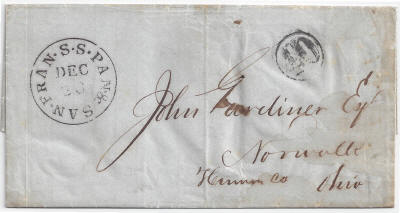 SAN·FRAN·S.S.PANA.
DEC
20
John Gardiner Esq
Norwalk
Huron Co Ohio